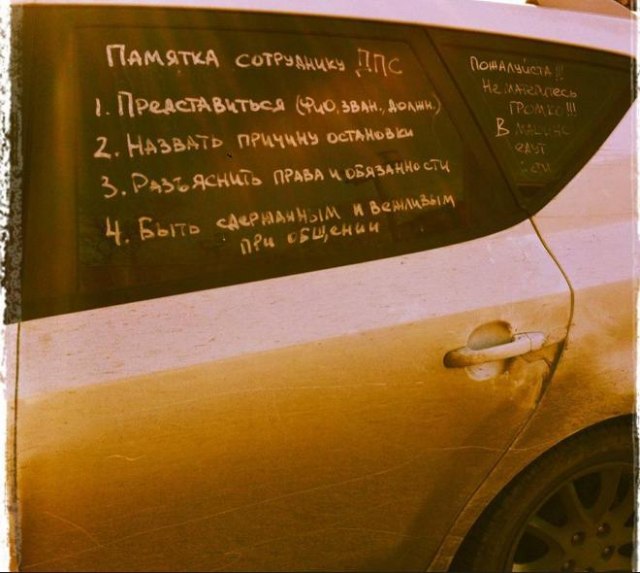 Памятка сотруднику ДПС
1. Представиться (фио, зван., должн.)
2. Назвать причину остановки
3. Разъяснить права и обязанности
4. Быть сдержанным и вежливым
при общении
Пожалуйста!!!
Не материтесь
громко!!!
В машине
едут